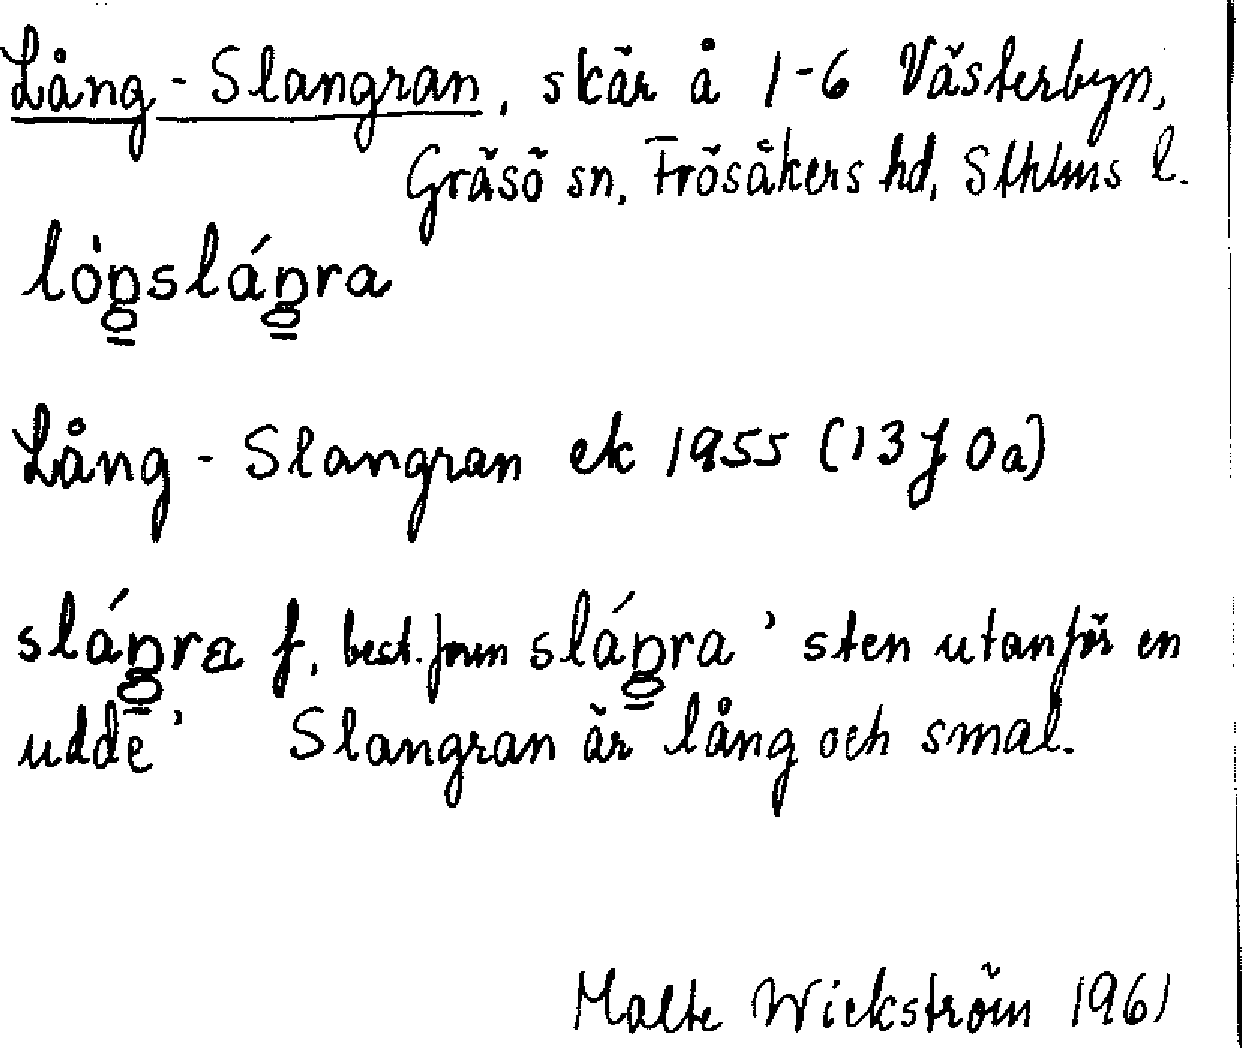 Lång-Slangran, skär å 1-6 Västerbyn,
Gräsö sn, Frösåkers hd, Sthlms l.
lóŋsláŋra
Lång-Slangran ek 1955 (13J 0a)
sláŋra f, best. form sláŋra 'sten utanför en
udde' Slangran är lång och smal.
Malte Wickström 1961